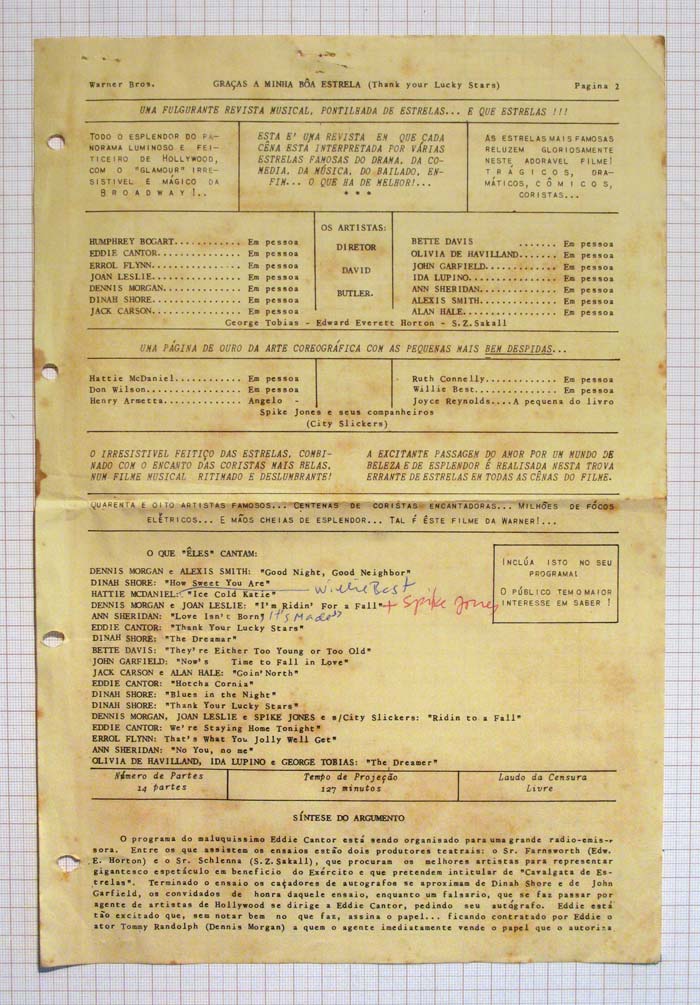 Warner Bros. GRAÇAS A MINHA BÔA ESTRELA (Thank your Lucky Stars) Pagina 2
UMA FULGURANTE REVISTA MUSICAL, PONTILHADA DE ESTRELAS... E QUE ESTRELAS !!!
TODO O ESPLENDOR DO PA-
NORAMA LUMINOSO E FEI-
TICEIRO DE HOLLYWOOD,
COM O "GLAMOUR" IRRE-
SISTIVEL E MÁGICO DA
BROADWAY!..
ESTA E' UMA REVISTA EM QUE CADA
CÊNA ESTA INTERPRETADA POR VÁRIAS
ESTRELAS FAMOSAS DO DRAMA, DA CO-
MEDIA, DA MÚSICA, DO BAILADO, EN-
FIM... O QUE HA DE MELHOR!...
* * *
AS ESTRELAS MAIS FAMOSAS
RELUZEM GLORIOSAMENTE
NESTE ADORAVEL FILME!
TRÁGICOS, DRA-
MÁTICOS, CÔMICOS,
CORISTAS...
OS ARTISTAS:
DIRETOR
DAVID
BUTLER.
HUMPHREY BOGART............ Em pessoa
EDDIE CANTOR............... Em pessoa
ERROL FLYNN................ Em pessoa
JOAN LESLIE................ Em pessoa
DENNIS MORGAN.............. Em pessoa
DINAH SHORE................ Em pessoa
JACK CARSON................ Em pessoa
BETTE DAVIS ....... Em pessoa
OLIVIA DE HAVILLAND....... Em pessoa
JOHN GARFIELD............. Em pessoa
IDA LUPINO................ Em pessoa
ANN SHERIDAN.............. Em pessoa
ALEXIS SMITH.............. Em pessoa
ALAN HALE................. Em pessoa
George Tobias - Edward Everett Horton - S.Z.Sakall
UMA PÁGINA DE OURO DA ARTE COREOGRÁFICA COM AS PEQUENAS MAIS BEM DESPIDAS...
Hattie McDaniel............ Em pessoa
Don Wilson................. Em pessoa
Henry Armetta.............. Angelo -
Ruth Connelly............. Em pessoa
Willie Best............... Em pessoa
Joyce Reynolds....A pequena do livro
Spike Jones e seus companheiros
(City Slickers)
O IRRESISTIVEL FEITIÇO DAS ESTRELAS, COMBI-
NADO COM O ENCANTO DAS CORISTAS MAIS BELAS,
NUM FILME MUSICAL RITIMADO E DESLUMBRANTE!
A EXCITANTE PASSAGEM DO AMOR POR UM MUNDO DE
BELEZA E DE ESPLENDOR É REALISADA NESTA TROVA
ERRANTE DE ESTRELAS EM TODAS AS CÊNAS DO FILME.
QUARENTA E OITO ARTISTAS FAMOSOS... CENTENAS DE CORISTAS ENCANTADORAS... MILHÕES DE FÓCOS
ELÉTRICOS... E MÃOS CHEIAS DE ESPLENDOR... TAL É ÊSTE FILME DA WARNER!...
O QUE "ÊLES" CANTAM:
INCLÚA ISTO NO SEU
PROGRAMA!
O PÚBLICO TEM O MAIOR
INTERESSE EM SABER !
DENNIS MORGAN e ALEXIS SMITH: "Good Night, Good Neighbor"
DINAH SHORE: "How Sweet You Are"
HATTIE MCDANIEL: "Ice Cold Katie" Willie Best
DENNIS MORGAN e JOAN LESLIE: "I'm Ridin' For a Fall" + Spike Jones
ANN SHERIDAN: "Love Isn't Born, It's Made"
EDDIE CANTOR: "Thank Your Lucky Stars"
DINAH SHORE: "The Dreamar"
BETTE DAVIS: "They're Either Too Young or Too Old"
JOHN GARFIELD: "Now's Time to Fall in Love"
JACK CARSON e ALAN HALE: "Goin'North"
EDDIE CANTOR: "Hotcha Cornia"
DINAH SHORE: "Blues in the Night"
DINAH SHORE: "Thank Your Lucky Stars"
DENNIS MORGAN, JOAN LESLIE e SPIKE JONES e s/City Slickers: "Ridin to a Fall"
EDDIE CANTOR: We're Staying Home Tonight"
ERROL FLYNN: That's What You Jolly Well Get"
ANN SHERIDAN: "No You, no me"
OLIVIA DE HAVILLAND, IDA LUPINO e GEORGE TOBIAS: "The Dreamer"
Número de Partes Tempo de Projeção Laudo da Censura
14 partes 127 minutos Livre
SÍNTESE DO ARGUMENTO
O programa do maluquissimo Eddie Cantor está sendo organisado para uma grande radio-emis-
sora. Entre os que assistem os ensaios estão dois produtores teatrais: o Sr. Farnsworth (Edw.
E. Horton) e o Sr. Schlenna (S.Z.Sakall), que procuram os melhores artistas para representar
gigantesco espetáculo em beneficio do Exército e que pretendem intitular de "Cavalgata de Es-
trelas". Terminado o ensaio os caçadores de autografos se aproximam de Dinah Shore e de John
Garfield, os convidados de honra daquele ensaio, enquanto um falsario, que se faz passar por
agente de artistas de Hollywood se dirige a Eddie Cantor, pedindo seu autógrafo. Eddie está
tão excitado que, sem notar bem no que faz, assina o papel... ficando contratado por Eddie o
ator Tommy Randolph (Dennis Morgan) a quem o agente imediatamente vende o papel que o autoriza